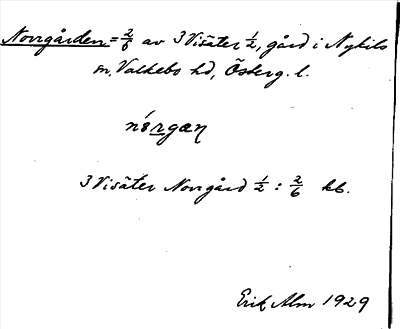 Norrgården = 2/6 av 3 Visäter 1/2, gård i Nykils
sn, Valkebo hd, Österg. l.
nórgan
3 Visäter Norrgård 1/2 : 2/6 kb.
Erik Alm 1929